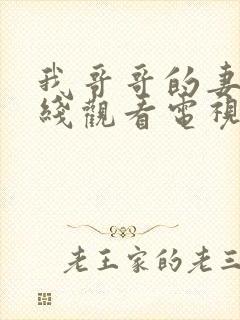 我哥哥的妻
綫觀看電視
老王家的老三